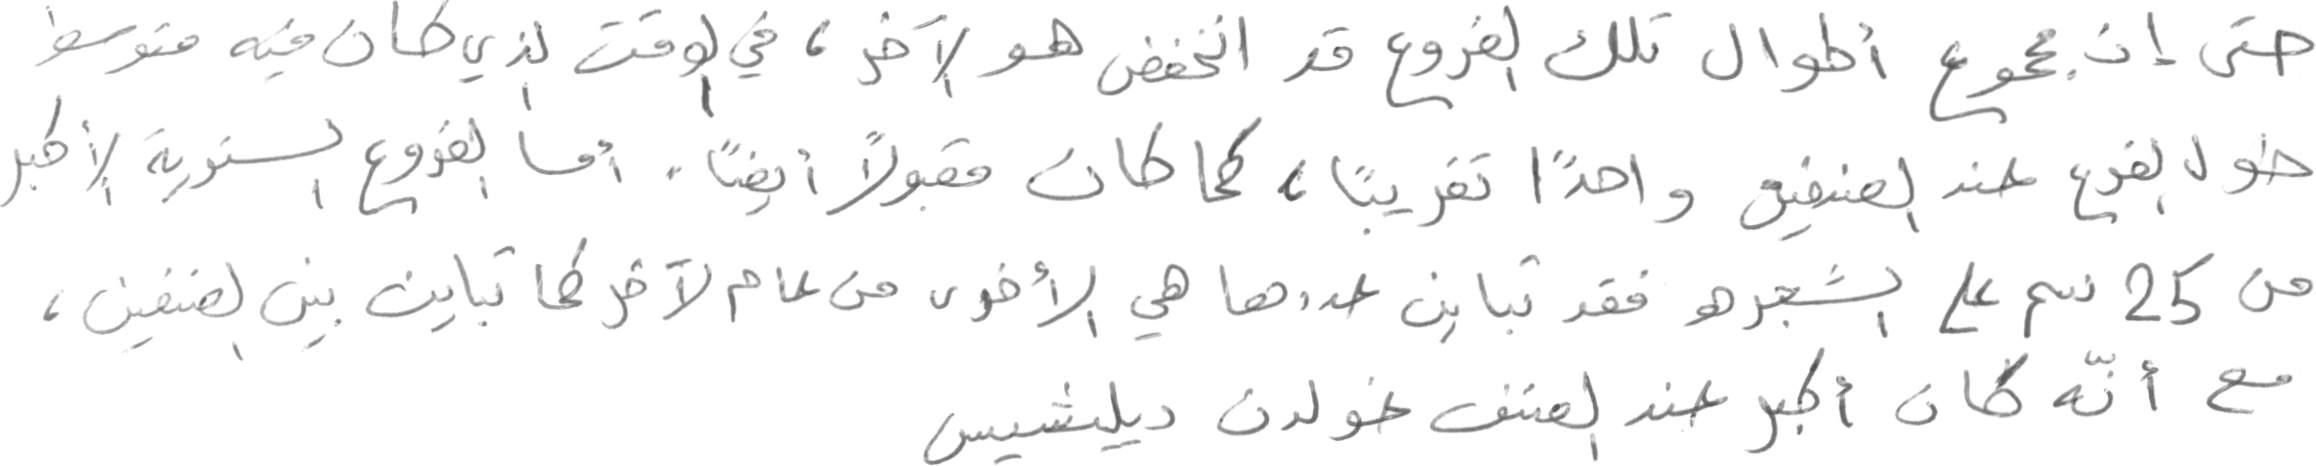 حتى إن مجموع أطوال تلك الفروع قد انخفض هو الآخر، في الوقت الذي كان فيه متوسط
طول الفرع عند الصنفين واحدًا تقريبًا، كما كان مقبولاً أيضًا. أما الفروع السنوية الأكبر
من 25 سم على الشجره فقد تباين عددها هي الأخرى من عام لآخر كما تباين بين الصنفين،
مع أنّه كان أكبر عند الصنف غولدن ديليشيس